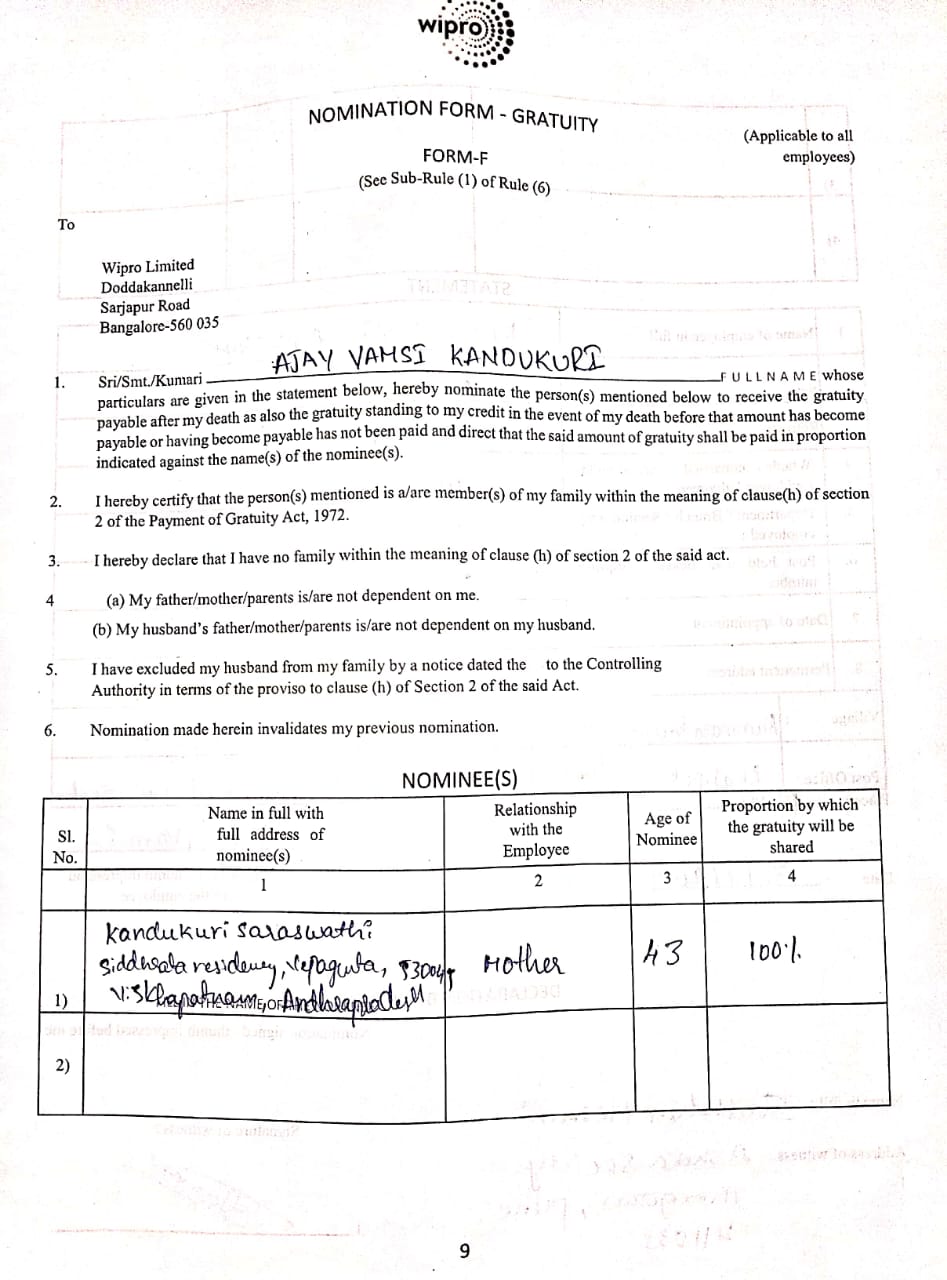 wipro
NOMINATION FORM - GRATUITY
(Applicable to all
employees)
FORM-F
(See Sub-Rule (1) of Rule (6)
To
Wipro Limited
Doddakannelli
Sarjapur Road
Bangalore-560 035
1. Sri/Smt./Kumari AJAY VAMSI KANDUKURI F U L L N A M E whose
particulars are given in the statement below, hereby nominate the person(s) mentioned below to receive the gratuity
payable after my death as also the gratuity standing to my credit in the event of my death before that amount has become
payable or having become payable has not been paid and direct that the said amount of gratuity shall be paid in proportion
indicated against the name(s) of the nominee(s).
2. I hereby certify that the person(s) mentioned is a/are member(s) of my family within the meaning of clause(h) of section
2 of the Payment of Gratuity Act, 1972.
3. I hereby declare that I have no family within the meaning of clause (h) of section 2 of the said act.
4 (a) My father/mother/parents is/are not dependent on me.
(b) My husband's father/mother/parents is/are not dependent on my husband.
5. I have excluded my husband from my family by a notice dated the to the Controlling
Authority in terms of the proviso to clause (h) of Section 2 of the said Act.
6. Nomination made herein invalidates my previous nomination.
NOMINEE(S)
Sl. No. Name in full with full address of nominee(s) Relationship with the Employee Age of Nominee Proportion by which the gratuity will be shared
1 2 3 4
Kandukuri Saraswathi
residency, Mother 43 100%
1)
2)
9